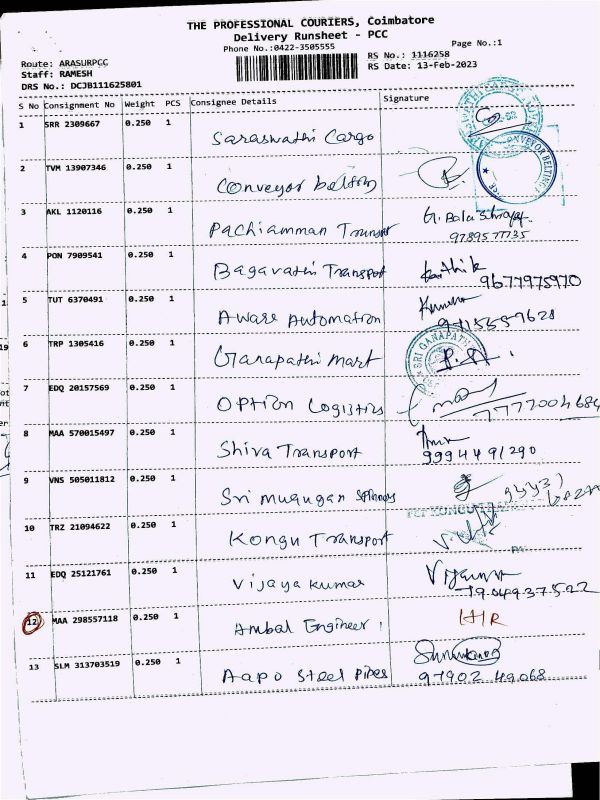 THE PROFESSIONAL COURIERS, Coimbatore
Delivery Runsheet - PCC
Phone No.:0422-3505555
Page No.:1
Route: ARASURPCC
Staff: RAMESH
DRS No.: DCJB111625801
RS No.: 1116258
RS Date: 13-Feb-2023
S No Consignment No Weight PCS Consignee Details Signature
1 SRR 2309667 0.250 1 Saraswathi Cargo
2 TVM 13907346 0.250 1 Conveyor belting
3 AKL 1120116 0.250 1 Pachiamman Transport
9789577735
4 PON 7909541 0.250 1 Bagavathi Transport Karthik
9677975970
5 TUT 6370491 0.250 1 Aware Automation
6 TRP 1305416 0.250 1 Ganapathi Mart
SRI GANAPATHI
7 EDQ 20157569 1 0.250 Option Logistics
7777004684
8 MAA 570015497 0.250 1 Shiva Transport
9994491290
9 VNS 505011812 0.250 1 Sri Murugan
10 TRZ 21094622 0.250 1 Kongu Transport
11 EDQ 25121761 0.250 1 Vijaya Kumar
12 MAA 298557118 0.250 1 Ambal Engineer
13 SLM 313703519 0.250 1 Aapo Steel Pipes
97902 49068